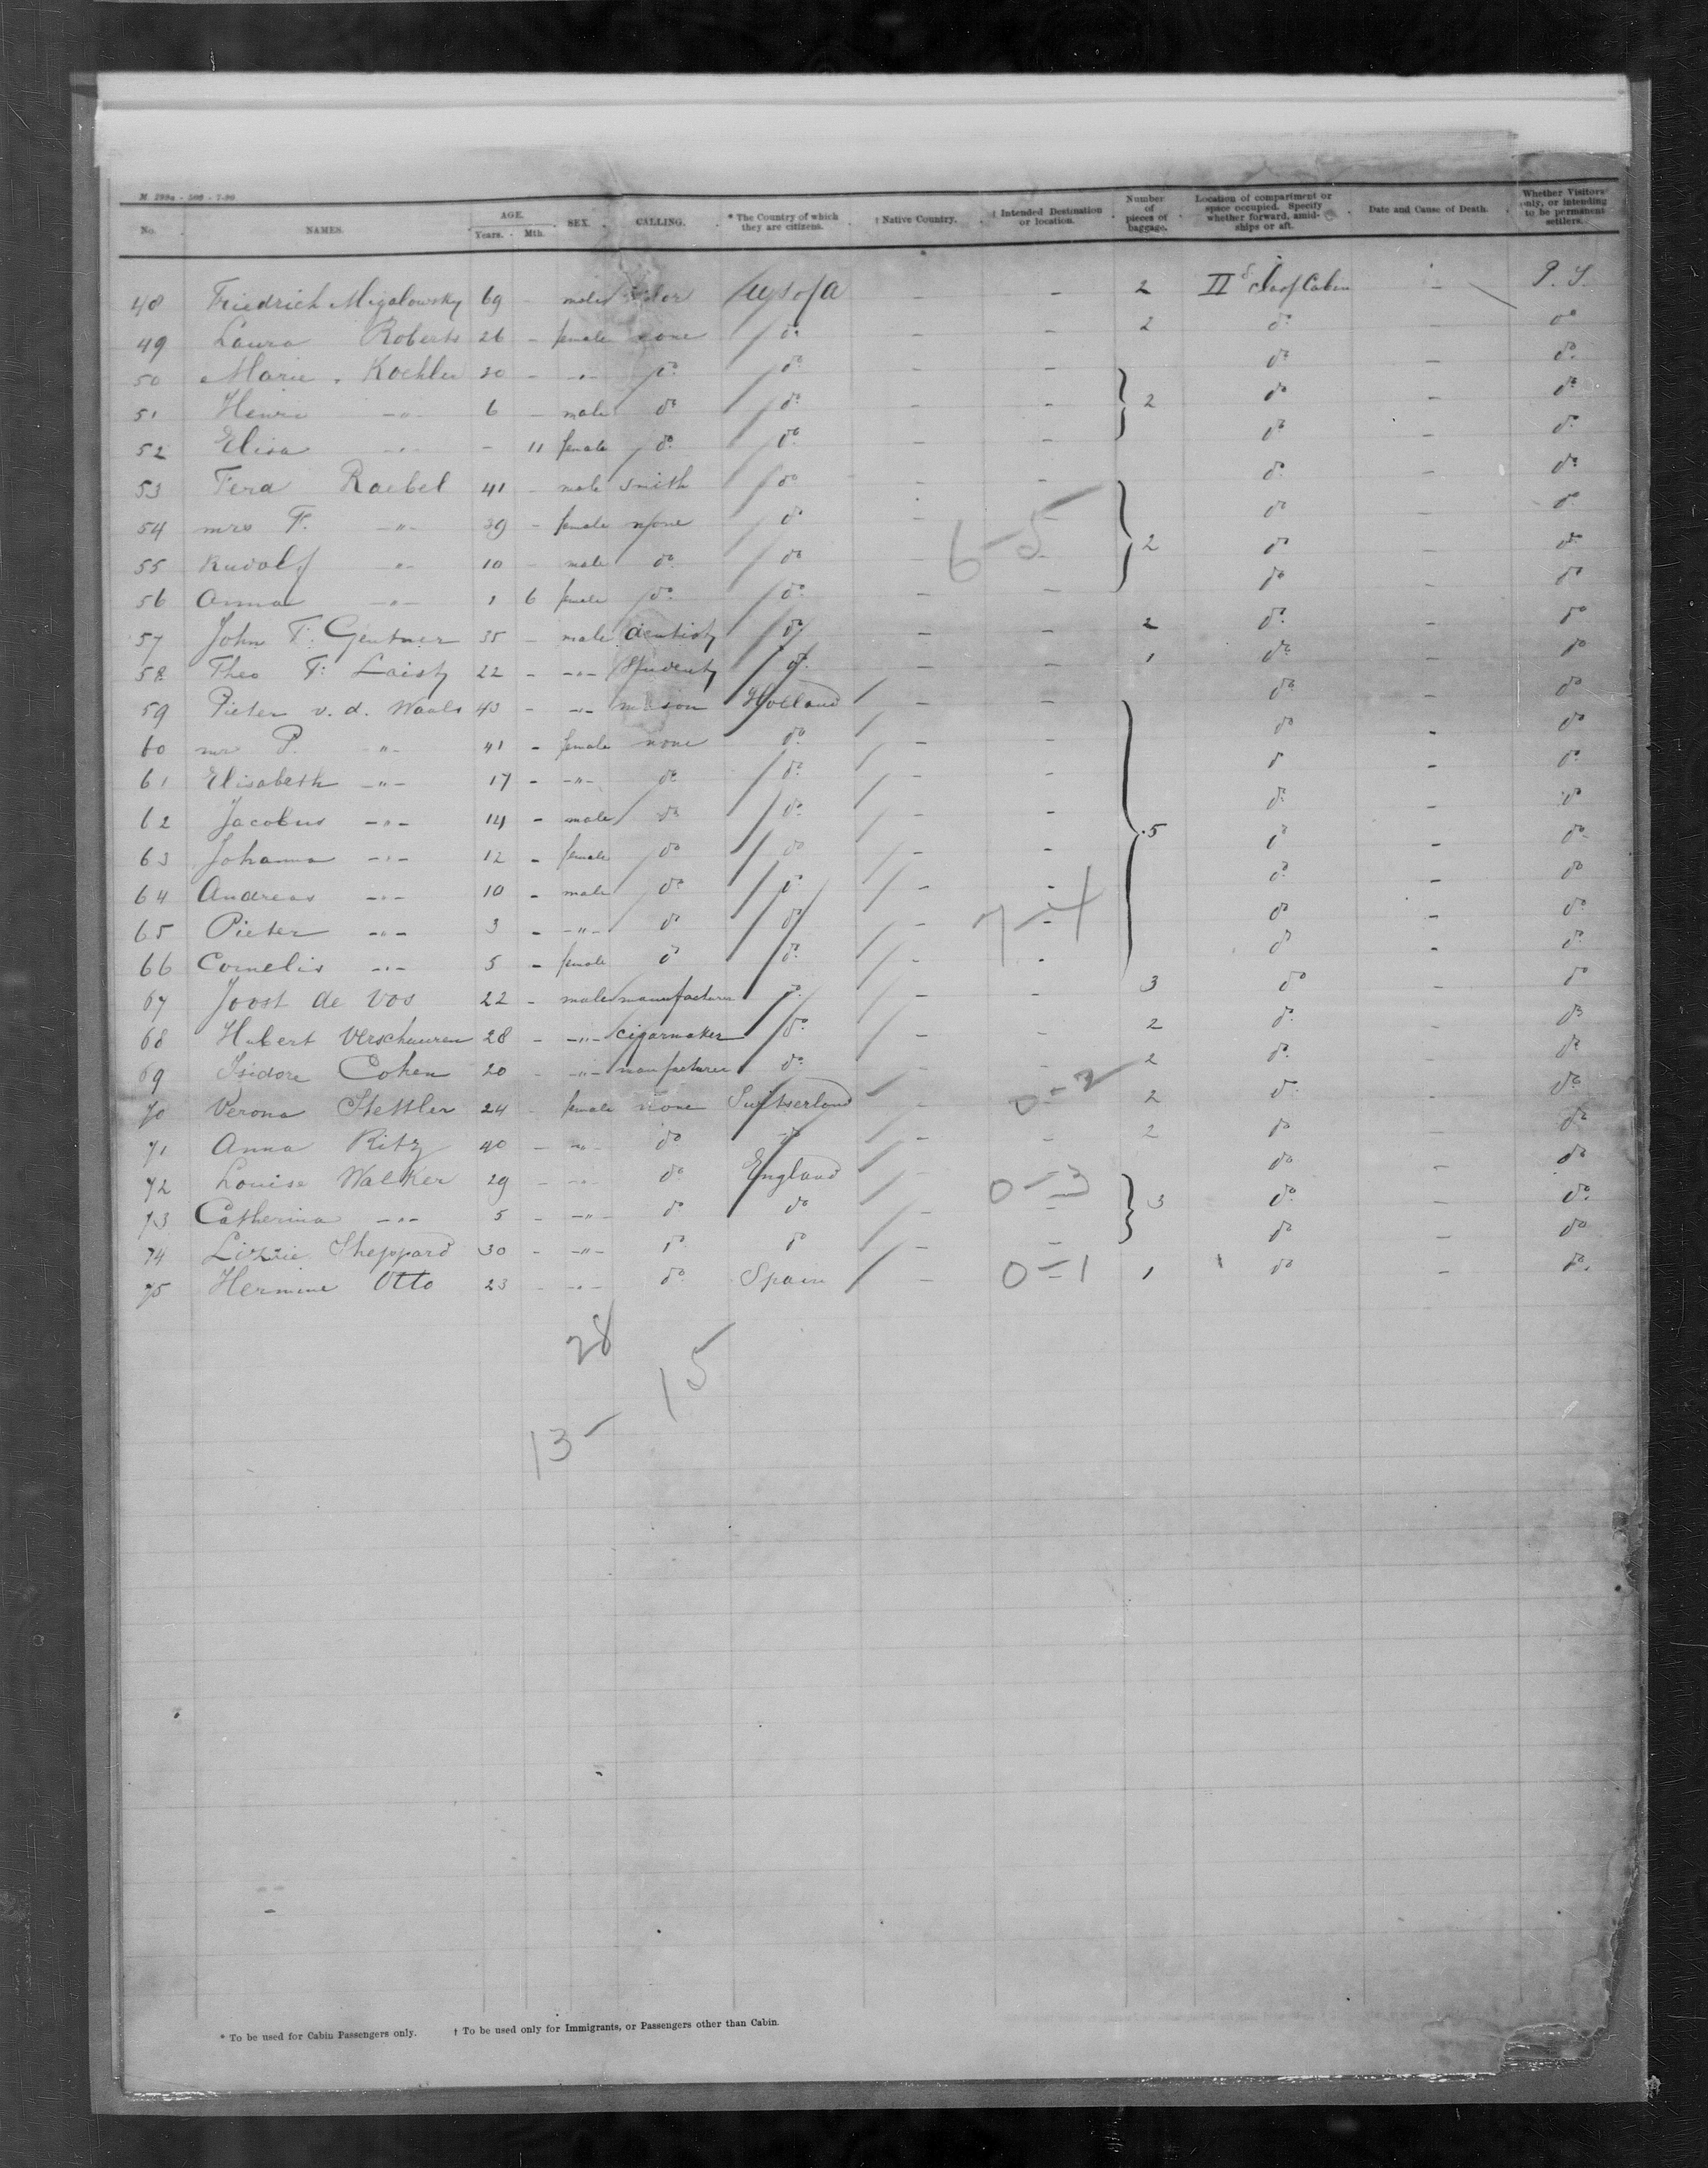 M 299a - 500 - 7-90
No. NAMES. AGE. Years. Mth. SEX. CALLING. * The Country of which they are citizens. † Native Country. † Intended Destination or location. Number of pieces of baggage. Location of compartment or space occupied. Specify whether forward, amidships or aft. Date and Cause of Death. Whether Visitors only, or intending to be permanent settlers.
48 Friedrich Migalowsky 69 - male U S of A - - 2 II d class Cabin - P. S.
49 Laura Roberts 26 - female none do - - 2 do - do
50 Marie Koehler 30 - -"- do do - - do - do
51 Henri -"- 6 - male do do - - 2 do - do
52 Elisa -"- - 11 female do do - - do - do
53 Ferd Raebel 41 - male smith do - - do - do
54 mrs F. -"- 39 - female none do - - do - do
55 Rudolf -"- 10 - male do do - - 2 do - do
56 Anna -"- 1 6 female do do - - do - do
6-5
57 John F. Gentner 35 - male dentist do - - 2 do - do
58 Theo F. Laist 22 - -"- Student do - - 1 do - do
59 Pieter v. d. Waals 43 - -"- mason Holland - - do - do
60 mr P. -"- 41 - female none do - - do - do
61 Elisabeth -"- 17 - -"- do do - - do - do
62 Jacobus -"- 14 - male do do - - do - do
63 Johanna -"- 12 - female do do - - 5 do - do
64 Andreas -"- 10 - male do do - - do - do
65 Pieter -"- 3 - -"- do do - - do - do
7-4
66 Cornelis -"- 5 - female do do - - do - do
67 Joost de Vos 22 - male manufacturer do - - 3 do - do
68 Hubert Verschuuren 28 - -"- cigarmaker do - - 2 do - do
69 Isidore Cohen 20 - -"- manufacturer do - - 2 do - do
70 Verona Stettler 24 - female none Switserland - 0-2 2 do - do
71 Anna Ritz 40 - -"- do do - - 2 do - do
72 Louise Walker 29 - -"- do England - 0-3 do - do
73 Catherina -"- 5 - -"- do do - - 3 do - do
74 Lizzie Sheppard 30 - -"- do do - - do - do
75 Hermine Otto 23 - -"- do Spain - 0-1 1 do - do
28
15
13-
* To be used for Cabin Passengers only. † To be used only for Immigrants, or Passengers other than Cabin.